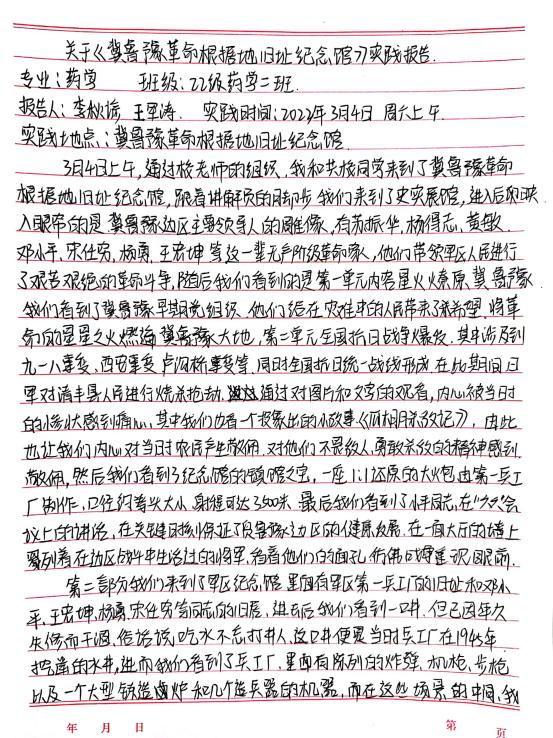 关于《冀鲁豫革命根据地旧址纪念馆》实践报告.
专业:药学 班级:22级药学二班.
报告人:李秋瑜 王军涛. 实践时间:2023年3月4日 周六上午
实践地点:冀鲁豫革命根据地旧址纪念馆.
3月4日上午,通过校老师的组织、我和其他同学来到了冀鲁豫革命
根据地旧址纪念馆,跟着讲解员的脚步我们来到了史实展馆,进入后映
入眼帘的是冀鲁豫边区主要领导人的雕像,有苏振华,杨得志,黄敬.
邓小平,宋任穷,杨勇,王宏坤等这一辈无产阶级革命家人,他们带领军区人民进行
了艰苦艰绝的革命斗争,随后我们看到的是第一单元内容星火燎原,冀鲁豫.
我们看到了冀鲁豫早期党组织,他们给在灾难中的人民带来了新希望.将革
命的星星之火燃遍冀鲁豫大地,第二单元全国抗日战争爆发,其中涉及到
九一八事变、西安事变卢沟桥事变等,同时全国抗日统一战线形成,在此期间日
军对清丰县人民进行烧杀抢劫.通过对图片和文字的观看,内心被当时
的惨状感到痛心,其中我们也看一个投影出的小故事《瓜棚杀敌记》,由此
也让我们内心对当时农民产生敬佩.对他们不畏敌人,勇敢杀敌的精神感到
敬佩,然后我们看到了纪念馆的镇馆之宝,一座1:1还原的大炮由第一兵工
厂制作,口径约
最后我们看到了小平同志,在
议上的讲话,在关键时刻保证了冀鲁豫边区的健康发展.在一面大厅的墙上
罗列着在边区战斗中生活过的将军,看着他们的面孔仿佛
第二部分我们来到了军区纪念馆,里面有军区第一兵工厂的旧址和邓小
平、王宏坤、杨勇、宋任穷等同志的旧居,进去后我们看到一口井.但已因年久
失修而干涸.俗话说,吃水不忘打井人,这口井便是当时兵工厂在1945年
挖凿的水井,进而我们看到了兵工厂.里面有陈列的炸弹、机枪、步枪
以及一个大型铁造卤炉和几个造兵器的机器,而在这些场景的中间,我
年 月 日 第 页